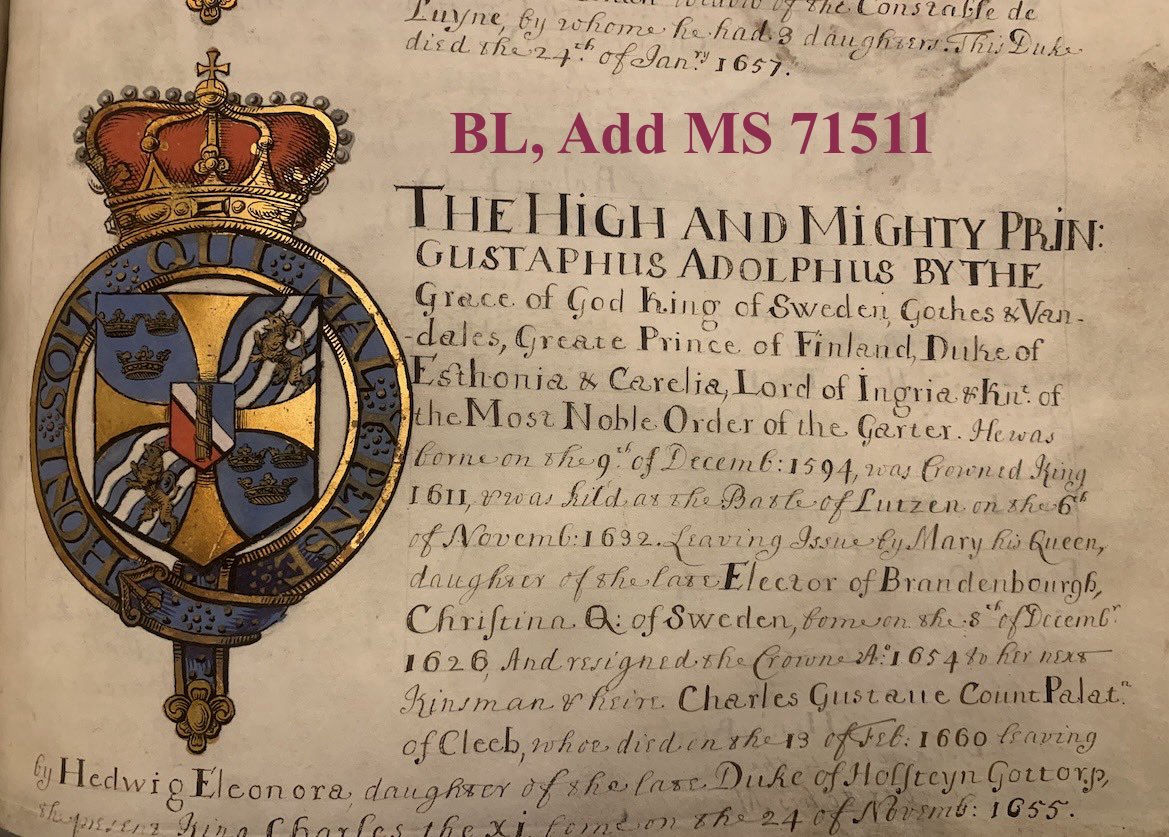 widow of the Constable de
Luyne, by whome he had 3 daughters. This Duke
died the 24th of Janry 1657.
BL, Add MS 71511
THE HIGH AND MIGHTY PRIN:
GUSTAPHUS ADOLPHUS BY THE
Grace of God King of Sweden, Gothes & Van-
-dales, Greate Prince of Finland, Duke of
Esthonia & Carelia, Lord of Ingria & Knt. of
the Most Noble Order of the Garter. He was
borne on the 9th of Decemb: 1594, was Crowned King
1611, & was kild at the Batle of Lutzen on the 6th
of Novemb: 1632. Leaving Issue by Mary his Queen,
daughter of the late Elector of Brandenbourgh,
Christina Q: of Sweden, borne on the 8th of Decembr.
1626, And resigned the Crowne Ao. 1654 to her next
Kinsman & heire Charles Gustaue Count Palatn.
of Cleeb, whoe died on the 13 of Feb: 1660 leaving
by Hedwig Eleonora, daughter of the late Duke of Holsteyn Gottorp,
the present King Charles the XI. borne on the 24 of Novemb: 1655.
HONI SOIT QUI MAL Y PENSE